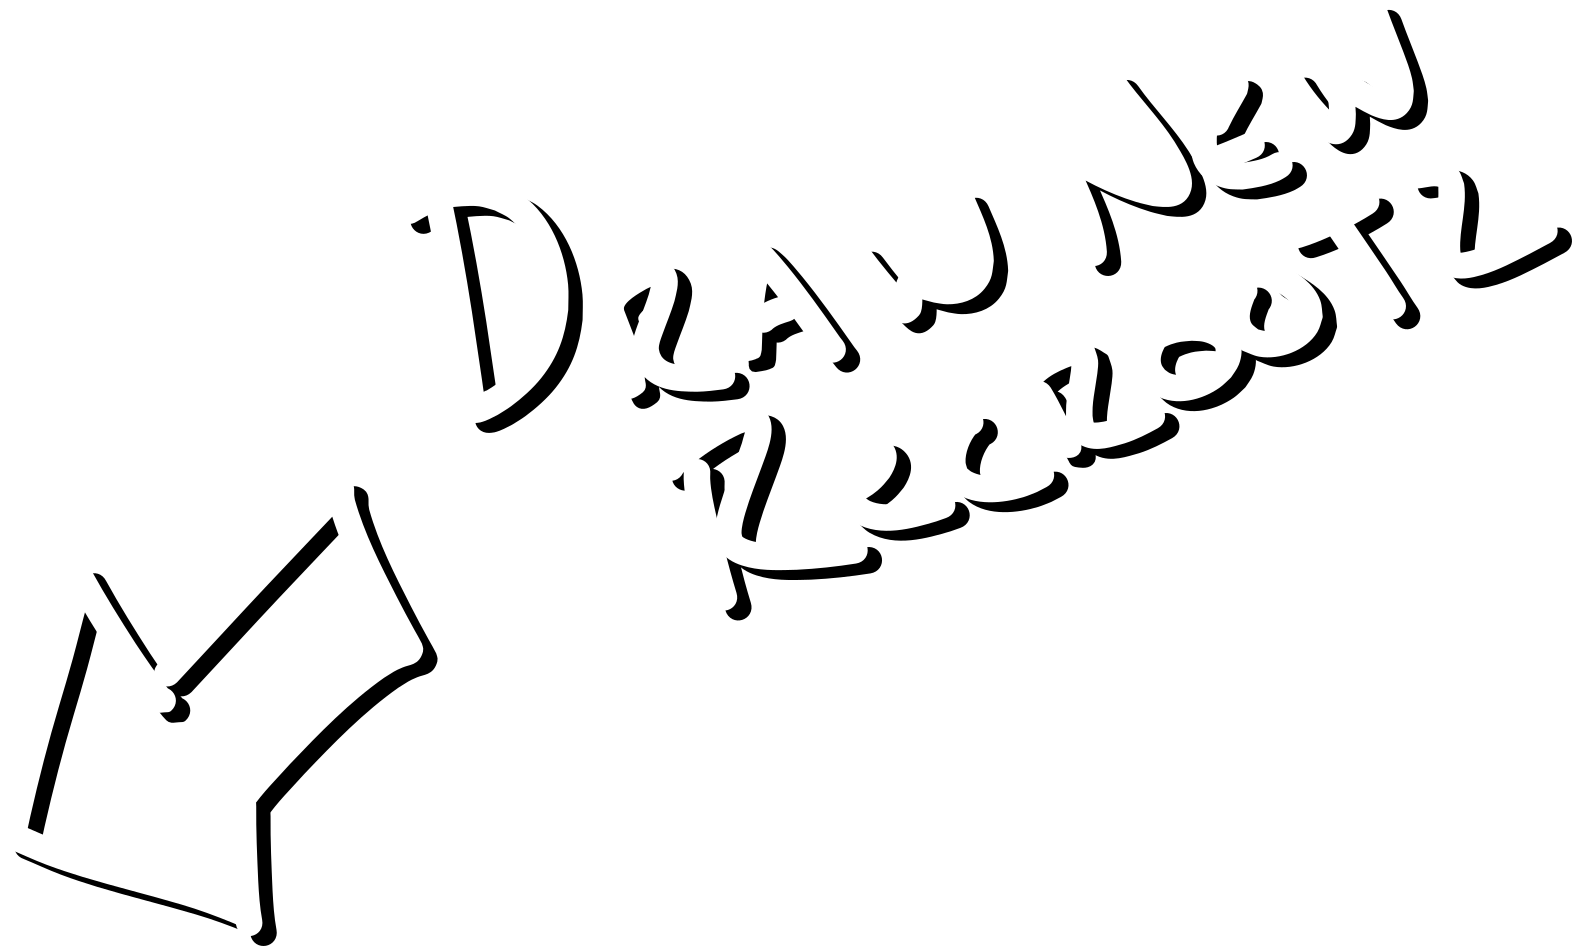 DRAW NEW
RECROOTZ